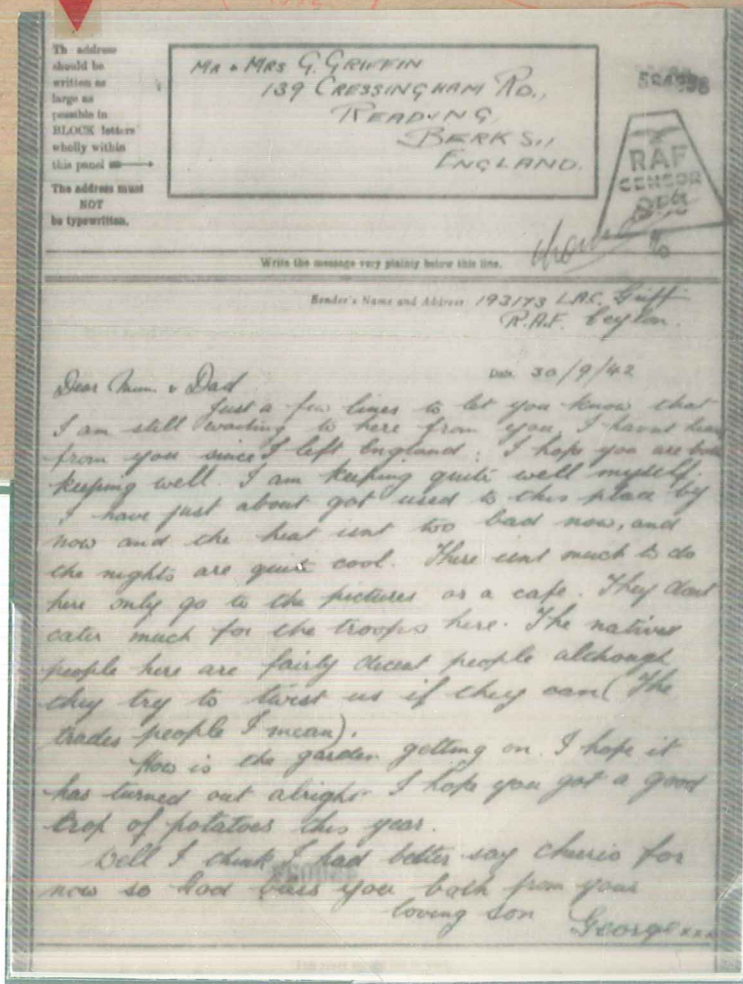 Th address
should be
written as
large as
possible in
BLOCK letters
wholly within
this panel
The address must
NOT
be typewritten.
MR & MRS G. GRIFFIN
139 CRESSINGHAM RD.,
READING,
BERKS.,
ENGLAND.
RAF
CENSOR
Write the message very plainly below this line.
Sender's Name and Address 193173 L.A.C. Griff
R.A.F. Ceylon.
Date 30/9/42
Dear Mum & Dad
Just a few lines to let you know that
I am still waiting to here from you, I havnt
from you since I left England; I hope you are both
keeping well. I am keeping quite well myself.
I have just about got used to this place by
now and the heat isnt too bad now, and
the nights are quite cool. There isnt much to do
here only go to the pictures or a cafe. They dont
cater much for the troops here. The native
people here are fairly decent people although
they try to twist us if they can (The
trades people I mean).
How is the garden getting on. I hope it
has turned out alright I hope you got a good
crop of potatoes this year.
Well I think I had better say cheerio for
now so God bless you both from your
loving son
George xxx